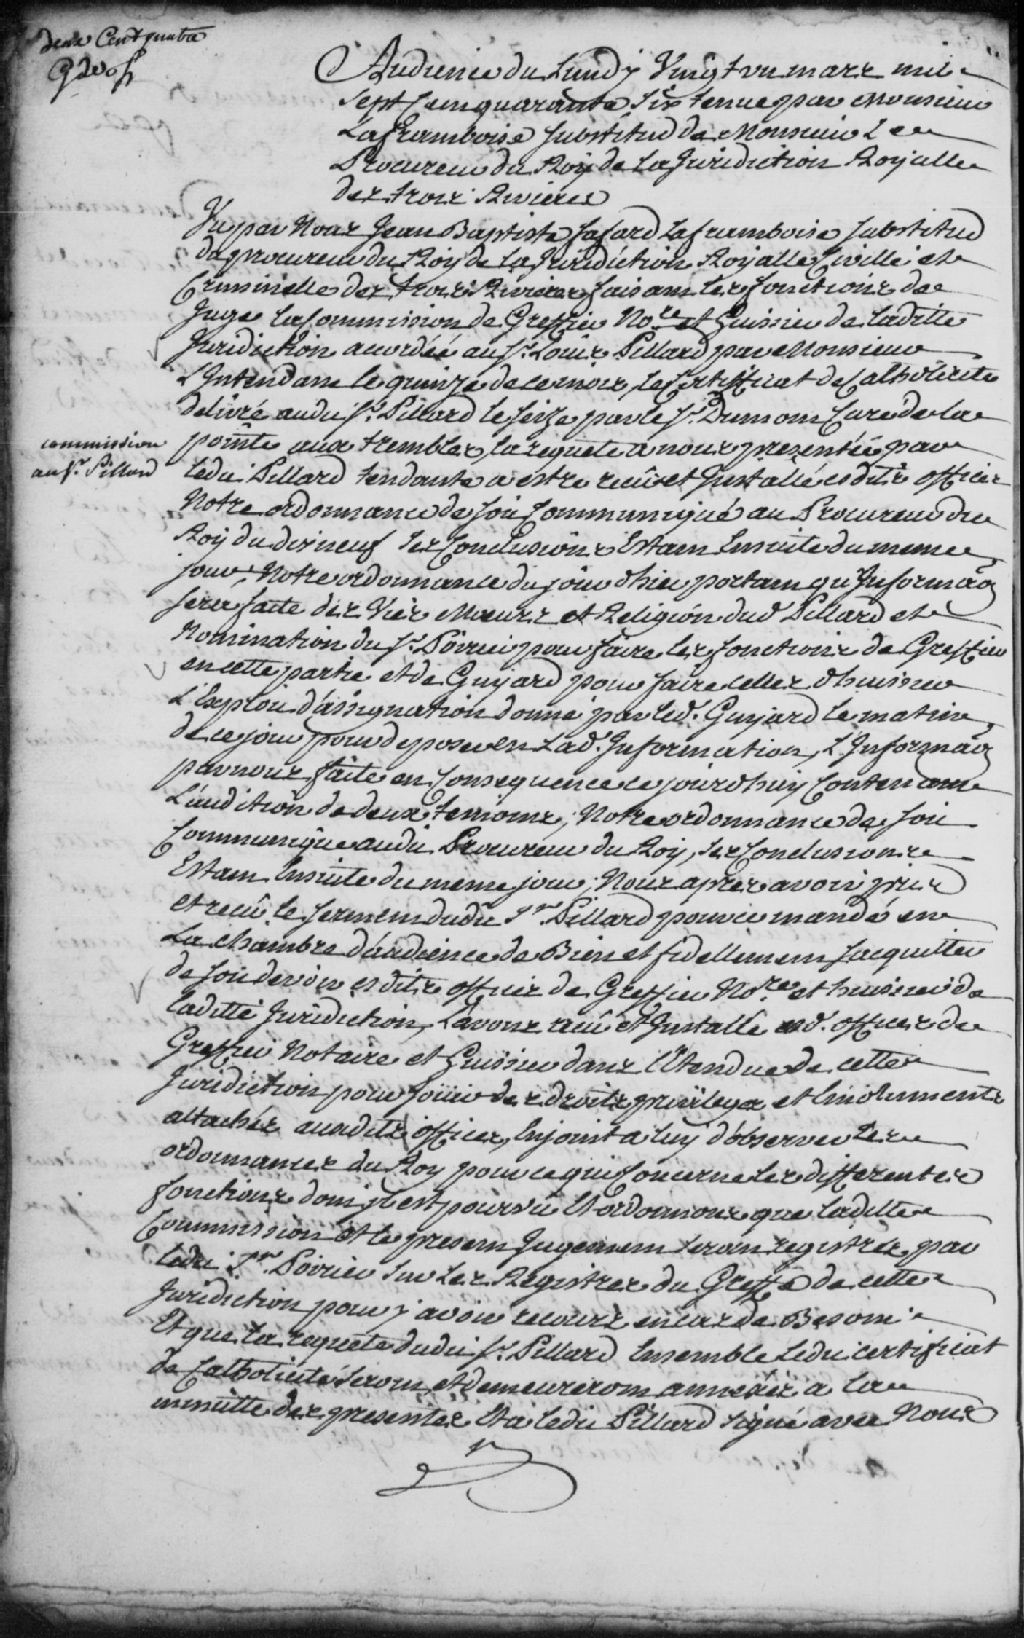 deux Cent quatre
Audience du Lundy Vingt un mars mil
Sept Cem quarante Six tenue par Monsieur
Laframboise Substitud de Monsieur Le
Procureur du Roy de La Juridiction Royalle
des trois Rivieres
Vu par Nous Jean Baptiste fafard Laframboise Substitud
du procureur du Roy de la Juridiction Royalle Civille et
Criminelle des trois Rivieres faisant les fonctions de
Juge La Commission de Greffier Nore et huissier de laditte
Juridiction accordée au Sr. Louis Pillard par Monsieur
L'Intendant le quinze de ce mois, le Certifficat de Catholicité
delivré audit Sr. Pillard le seize par le Sr. Dumont Curé de la
pointe aux trembles, la requete a nous presentée par
commission
au Sr. Pillard
ledit Pillard tendante a estre recu et Installé esdits offices
Notre ordonnance de soit Communiqué au Procureur du
Roy du dixneuf ses Conclusions Estant Ensuite du meme
jour, Notre ordonnance du jour d'hier portant qu'Informaon
sera faite des Vie Moeurs et Religion dud. Pillard et
Nomination du Sr. Poirier pour faire les fonctions de Greffier
en cette partie et de Guyard pour faire celles d'huissier
L'Exploit d'assignation donné par led. Guyard le matin
de ce jour pour deposer en Lad. Information, L'Informaon
par nous faite en Consequence ce jourdhuy Contenant
L'audition de deux temoins, Notre ordonnance de soit
Communiqué audit Procureur du Roy, ses Conclusions
Estant Ensuite du meme jour; Nous apres avoir pris
et recu le serment dudit Sr. Pillard pour ce mandé en
La chambre d'audience de Bien et fidellement s'acquitter
de son devoir esdits offices de Greffier Nore. et huissier de
laditte Juridiction, L'avons recu et Installé esd. offices de
Greffier Notaire et huissier dans l'Etendue de cette
Juridiction pour jouir des droits privileges et Emoluments
attachés auxdits offices, Enjoint a luy d'observer les
ordonnances du Roy pour ce qui Concerne les differentes
fonctions dont il est pourvu Et ordonnons que laditte
Commission et le present Jugement seront registrés par
ledit Sr. Poirier sur Les Registres du Greffe de cette
Juridiction pour y avoir recours en cas de Besoin
Et que la requete dudit Sr. Pillard Ensemble Ledit certifficat
de Catholicité seront et demeureront annexés a la
minutte des presentes Et a ledit Pillard signé avec Nous